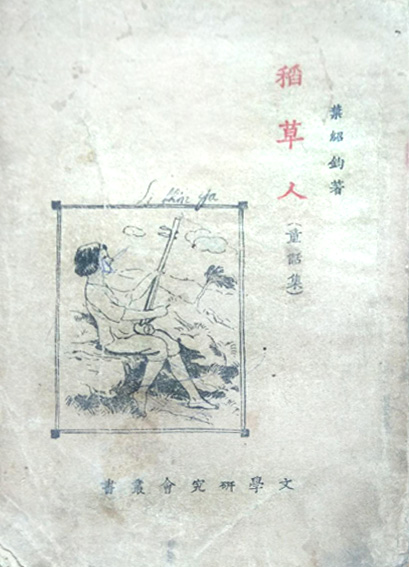 葉紹鈞著
稻草人
(童話集)
文學研究會叢書